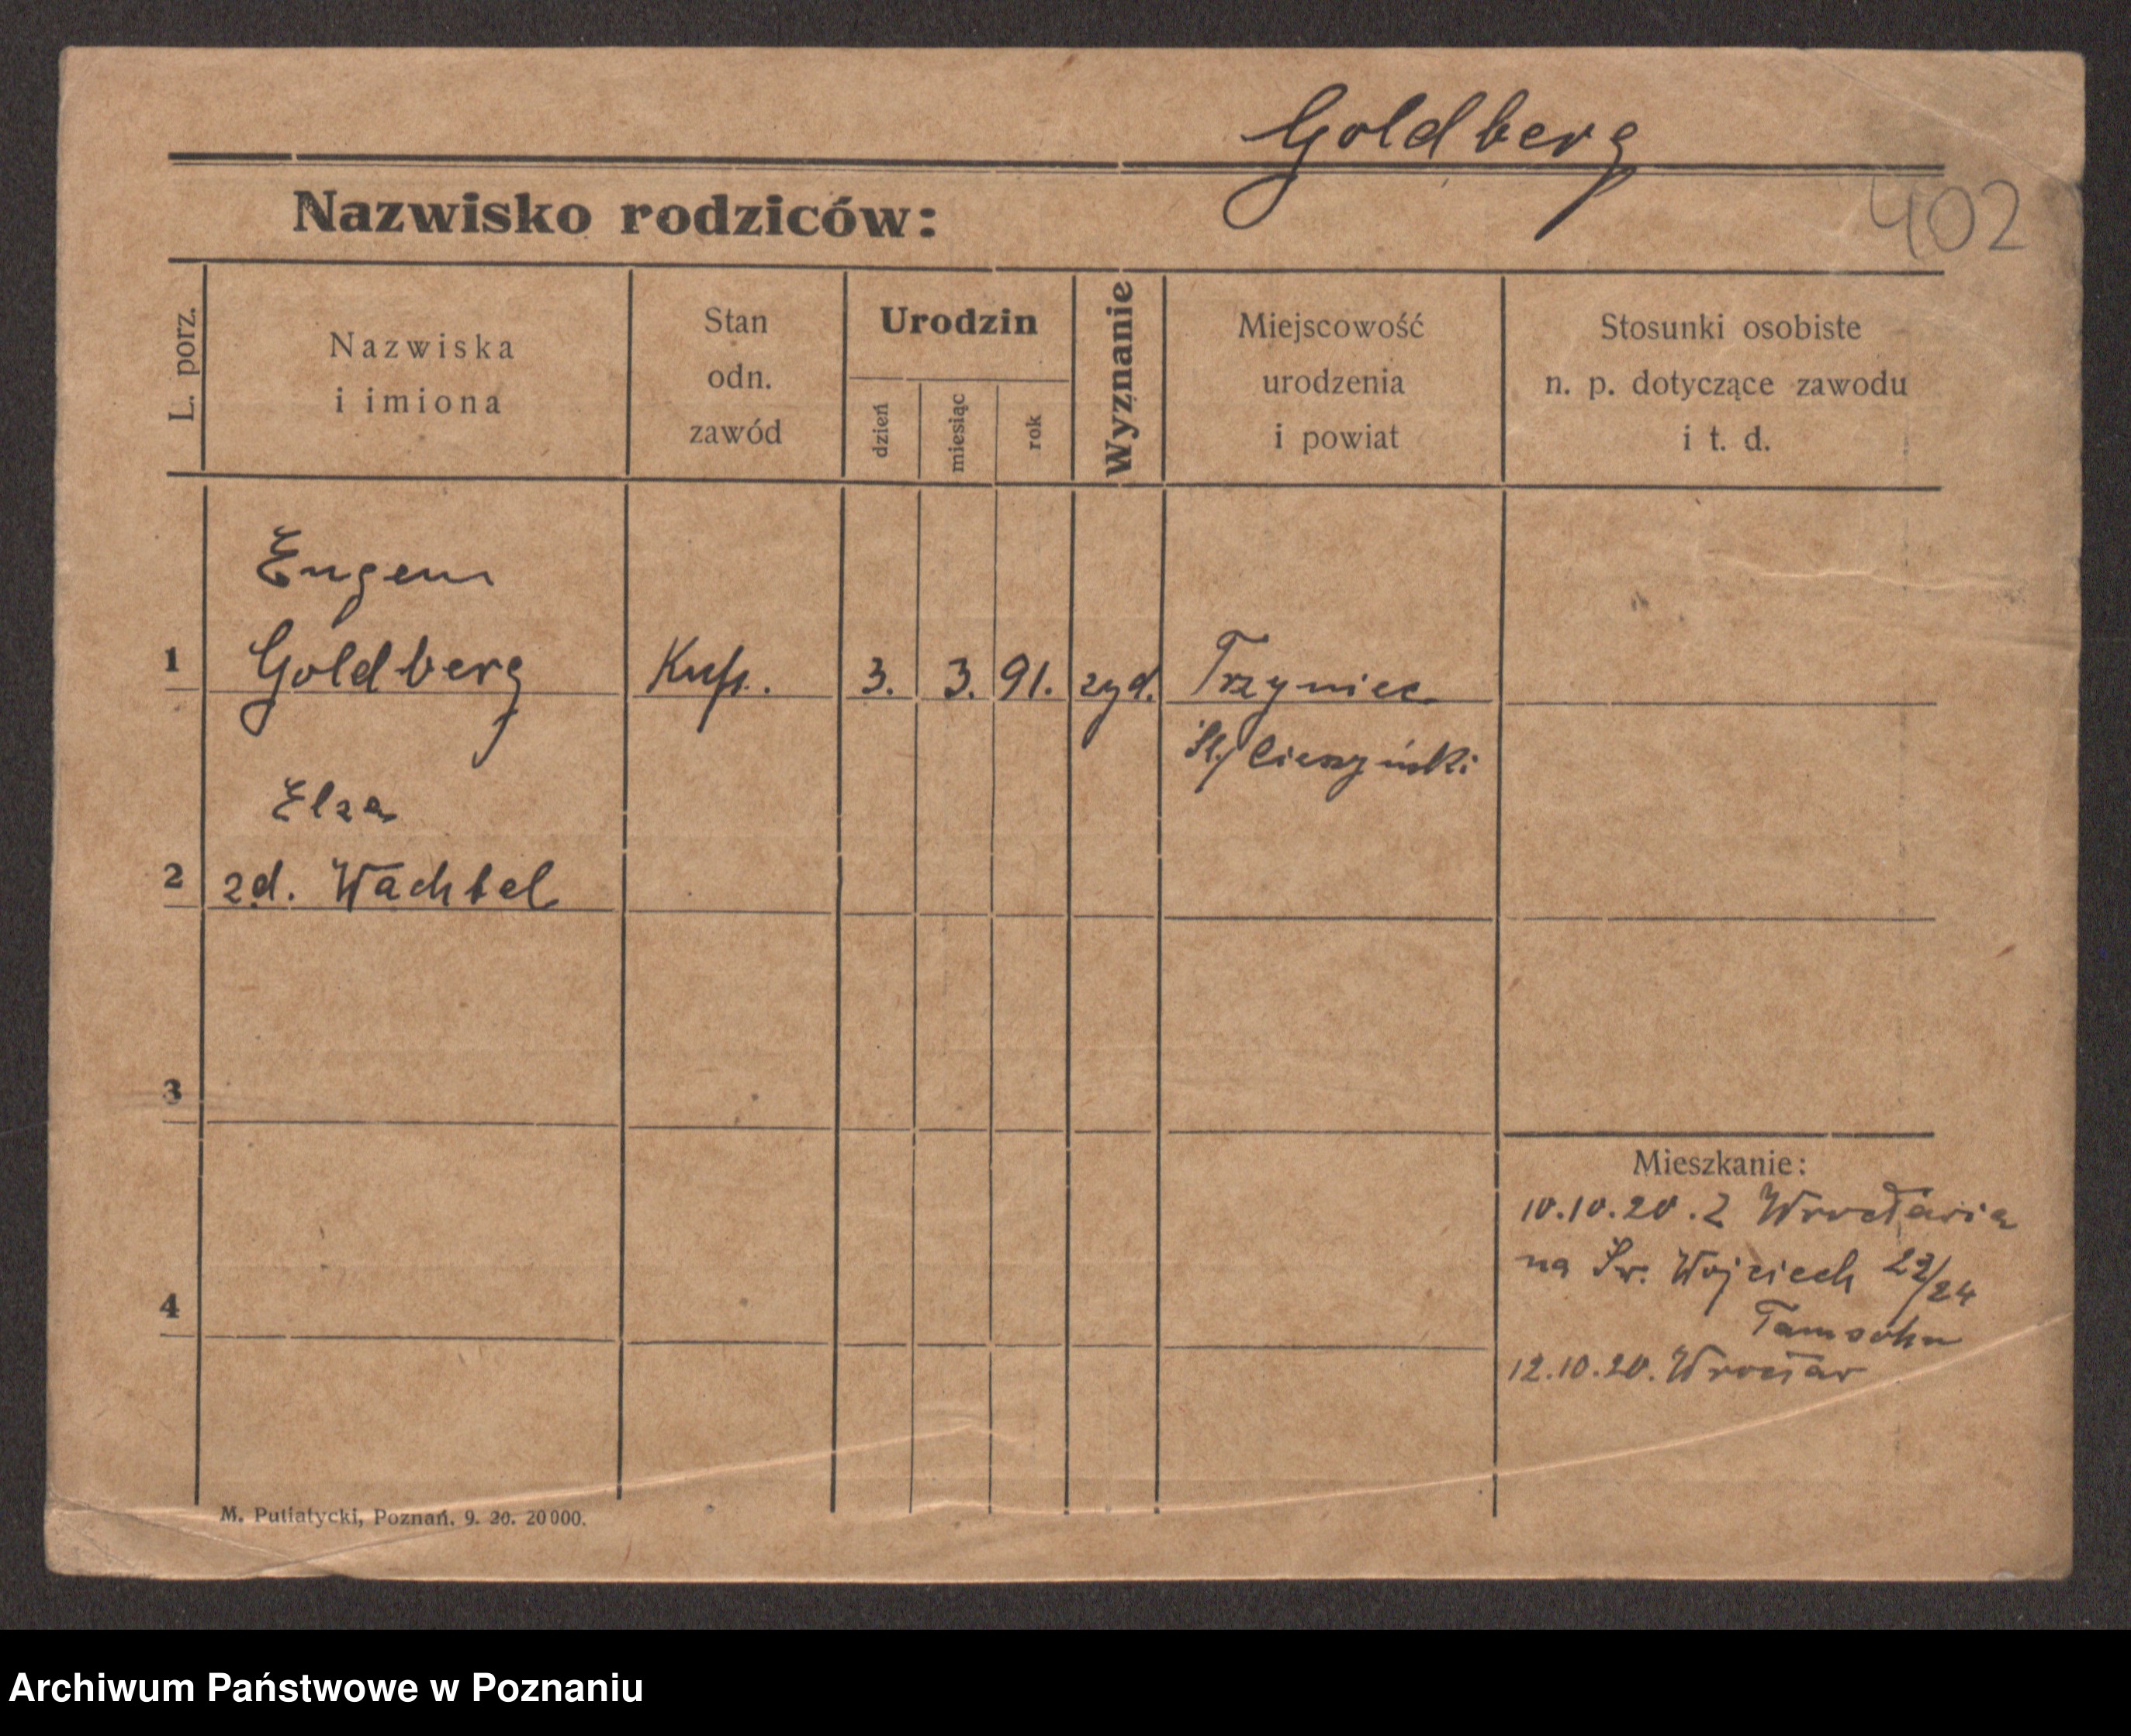 Goldberg
402
Nazwisko rodziców:
L. porz.
Nazwiska
i imiona
Stan
odn.
zawód
Urodzin
dzień
miesiąc
rok
Wyznanie
Miejscowość
urodzenia
i powiat
Stosunki osobiste
n. p. dotyczące zawodu
i t. d.
Eugen
1 Goldberg Kup. 3. 3. 91. żyd. Trzyniec
Śl. Cieszyński
Elza
2 zd. Wachtel
3
Mieszkanie:
10.10.20. Z Wrocławia
na Św. Wojciech 23/24
4
Tamsohn
12.10.20. Wrocław
M. Putiatycki, Poznań. 9. 20. 20000.
Archiwum Państwowe w Poznaniu